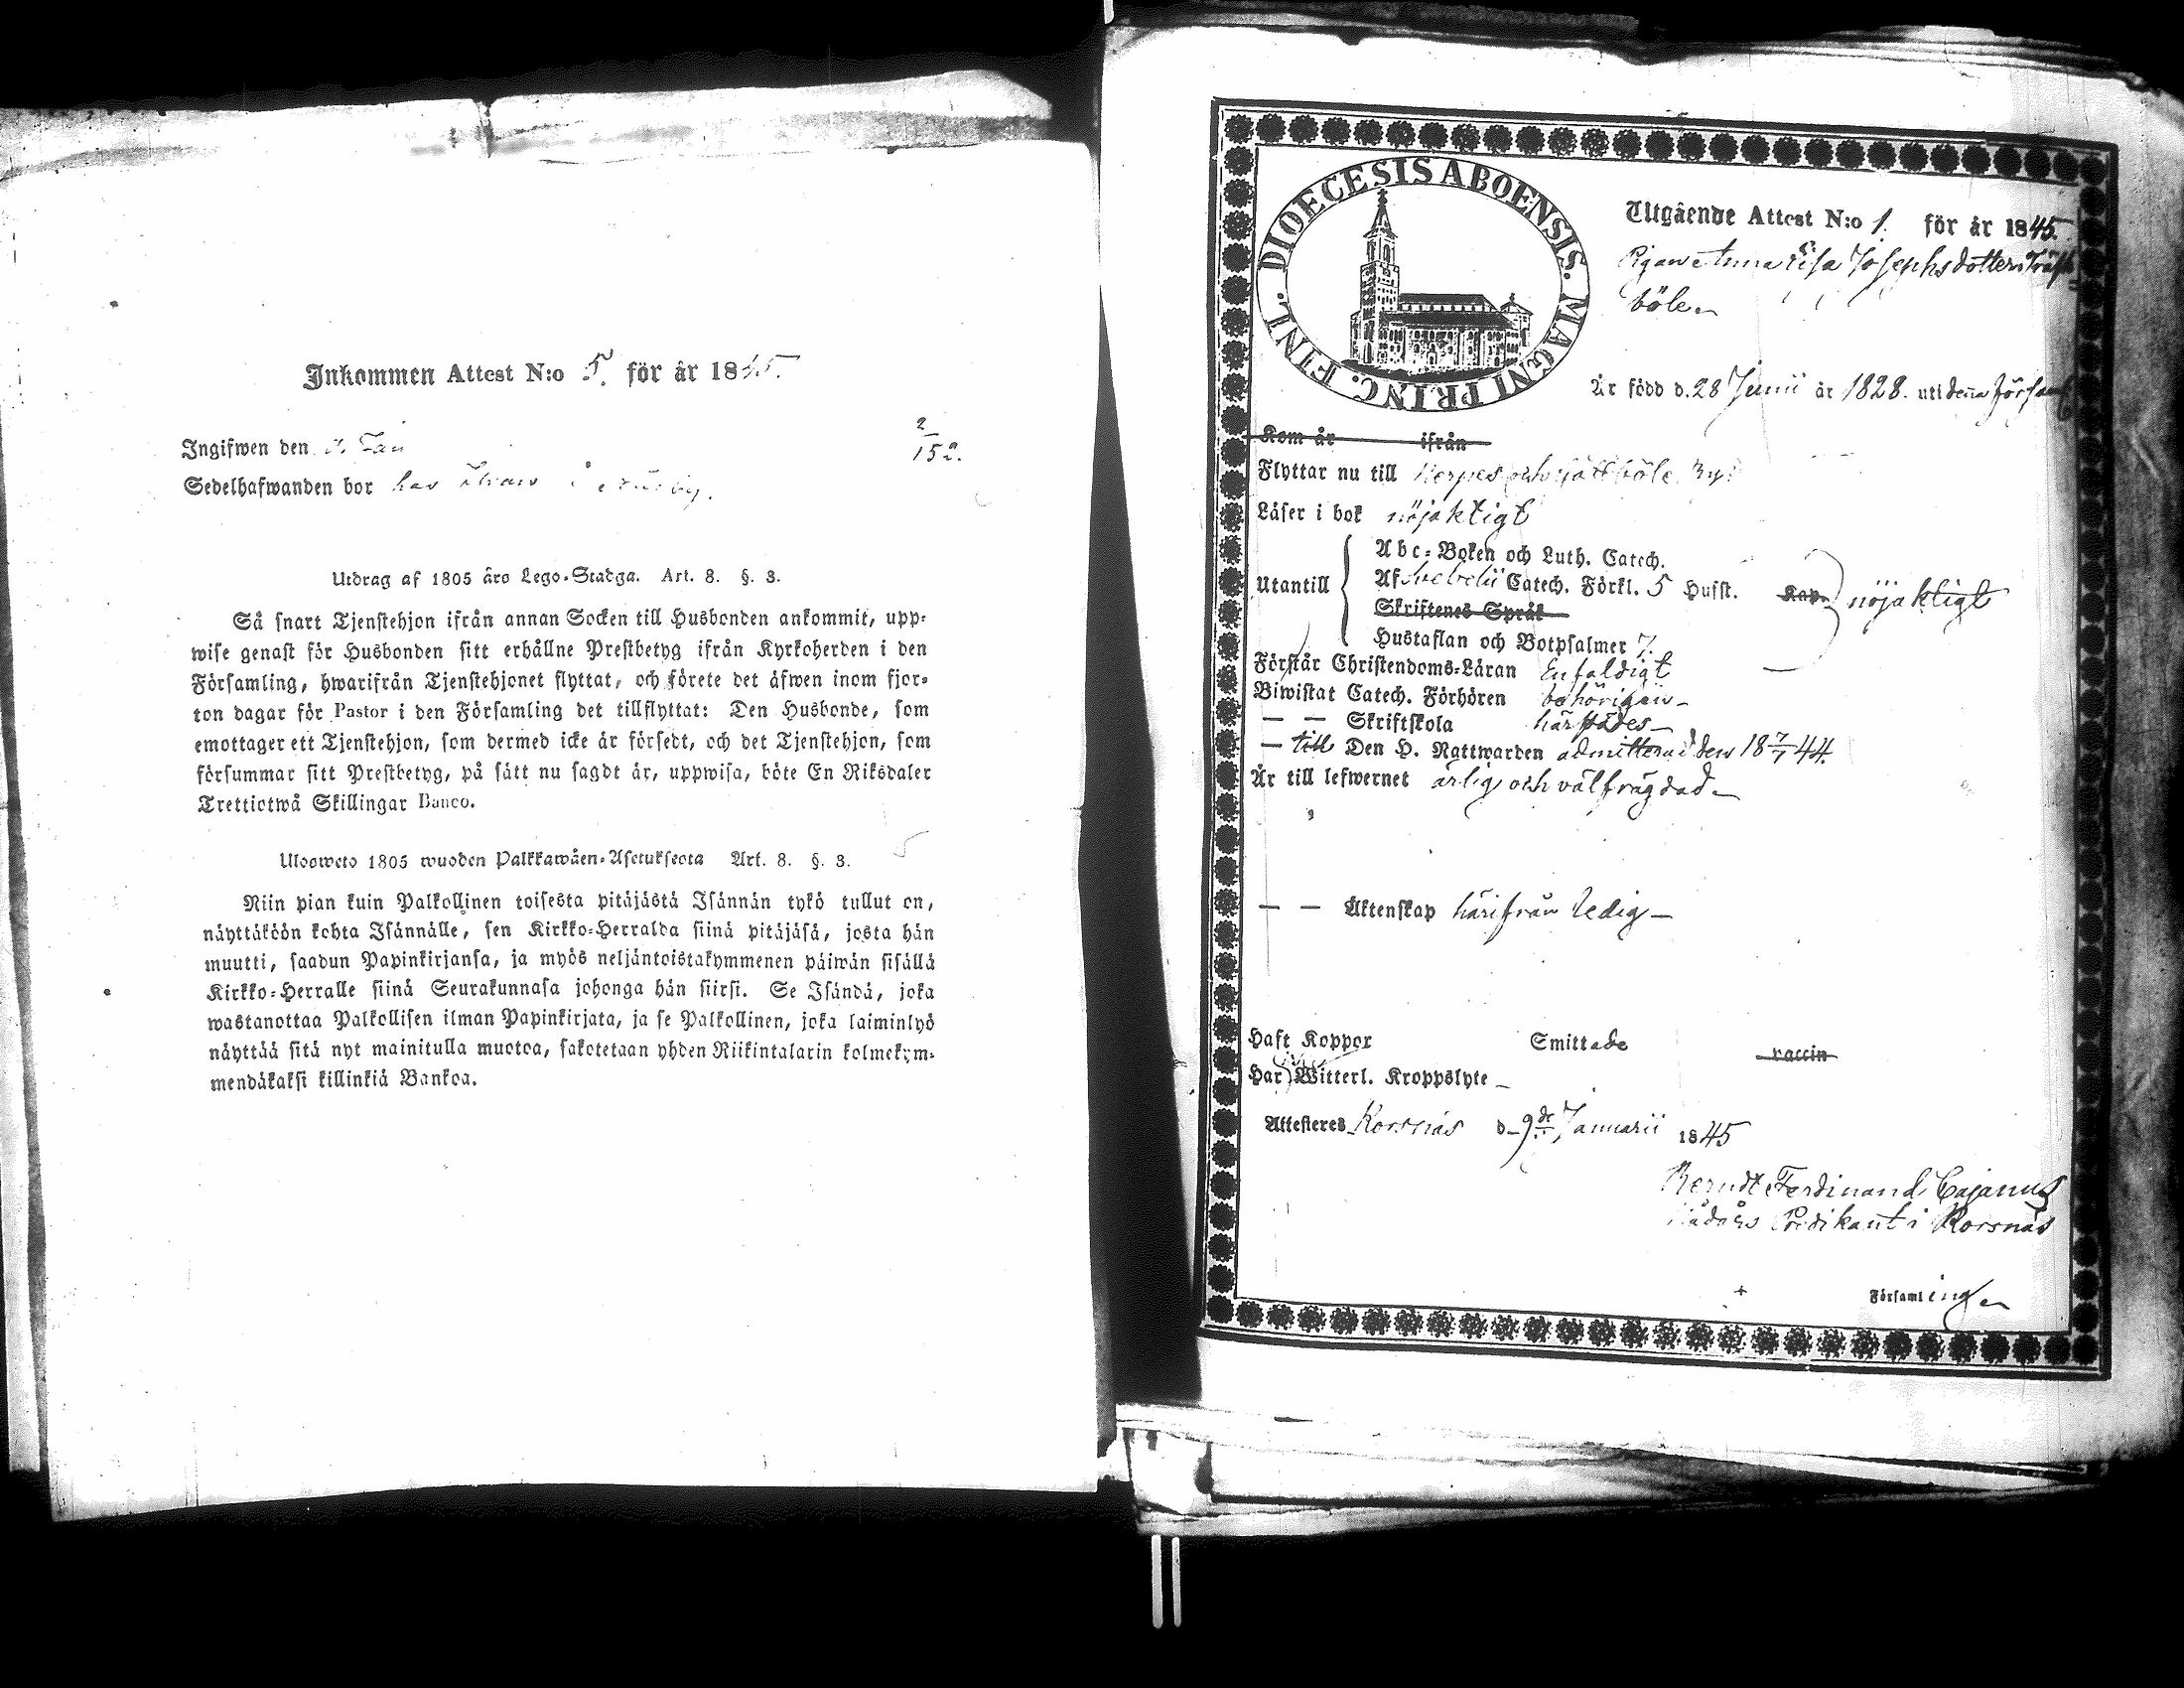 Inkommen Attest N:o 5. för år 1845.
2/152.
Ingifwen den
Sedelhafwanden bor har
Utdrag af 1805 åro Lego-Stadga. Art. 8. §. 3.
Så snart Tjenstehjon ifrån annan Socken till Husbonden ankommit, upp-
wise genast för Husbonden sitt erhållne Prestbetyg ifrån Kyrkoherden i den
Församling, hwarifrån Tjenstehjonet flyttat, och förete det äfwen inom fjor-
ton dagar för Pastor i den Församling det tillflyttat: Den Husbonde, som
emottager ett Tjenstehjon, som dermed icke är försedt, och det Tjenstehjon, som
försummar sitt Prestbetyg, på sätt nu sagdt är, uppwisa, böte En Riksdaler
Trettiotwå Skillingar Banco.
Ulosweto 1805 wuoden Palkkawäen-Asetuksesta Art. 8. §. 3.
Niin pian kuin Palkollinen toisesta pitäjästä Isännän tykö tullut on,
näyttäköön kohta Isännälle, sen Kirkko-Herralda siinä pitäjäsä, josta hän
muutti, saadun Papinkirjansa, ja myös neljäntoistakymmenen päiwän sisällä
Kirkko-Herralle siinä Seurakunnasa johonga hän siirsi. Se Isändä, joka
wastanottaa Palkollisen ilman Papinkirjata, ja se Palkollinen, joka laiminlyö
näyttää sitä nyt mainitulla muotoa, sakotetaan yhden Riikintalarin kolmekym-
mendäkaksi killinkiä Bankoa.
DIOECESIS ABOENSIS. MAGNI PRINC. FINL.
Utgående Attest N:o 1. för år 1845.
Pigan Anna Lisa Josephsdotter Träsk
böle
Är född d. 28 Junii år 1828. uti denna Församl
Kom år ifrån
Flyttar nu till Nerpes och Gåttböle By
Läser i bok nöjaktigt
Utantill
Abc-Boken och Luth. Catech.
Af Svebelii Catech. Förkl. 5 Hufst. Kap. nöjaktigt
Skriftenes Språk
Hustaflan och Botpsalmer 7.
Förstår Christendoms-Läran Enfaldigt
Biwistat Catech. Förhören behörigen
— — Skriftskola härstädes
— till Den H. Nattwarden admitterad den 18 7/7 44.
Är till lefwernet ärlig och välfrägdad
— — Äktenskap härifrån ledig
Haft Koppor Smittade vaccin
Har Witterl. Kroppslyte
Attesteres Korsnäs d. 9de Januarii 1845
Berndt Ferdinand Cajanus
Nådårs Predikant i Korsnäs
Församlingen